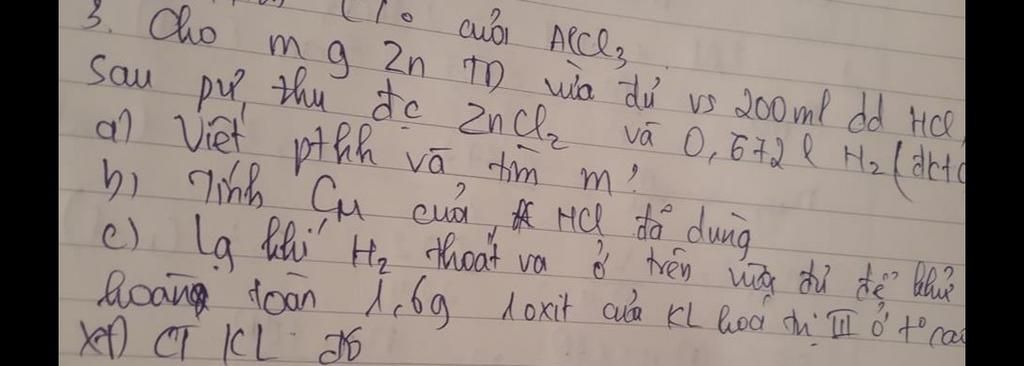 C% của AlCl3
3. Cho m g Zn TD vừa đủ vs 200ml dd HCl
Sau pư, thu đc ZnCl2 và 0,672 l H2 (đktc
a) Viết pthh và tìm m?
b) Tính CM của HCl đã dùng
c) Lg khí H2 thoát ra ở trên vừa đủ để khử
hoàng toàn 1,6g 1 oxit của KL hoá trị III ở t° cao
XĐ CT KL đó